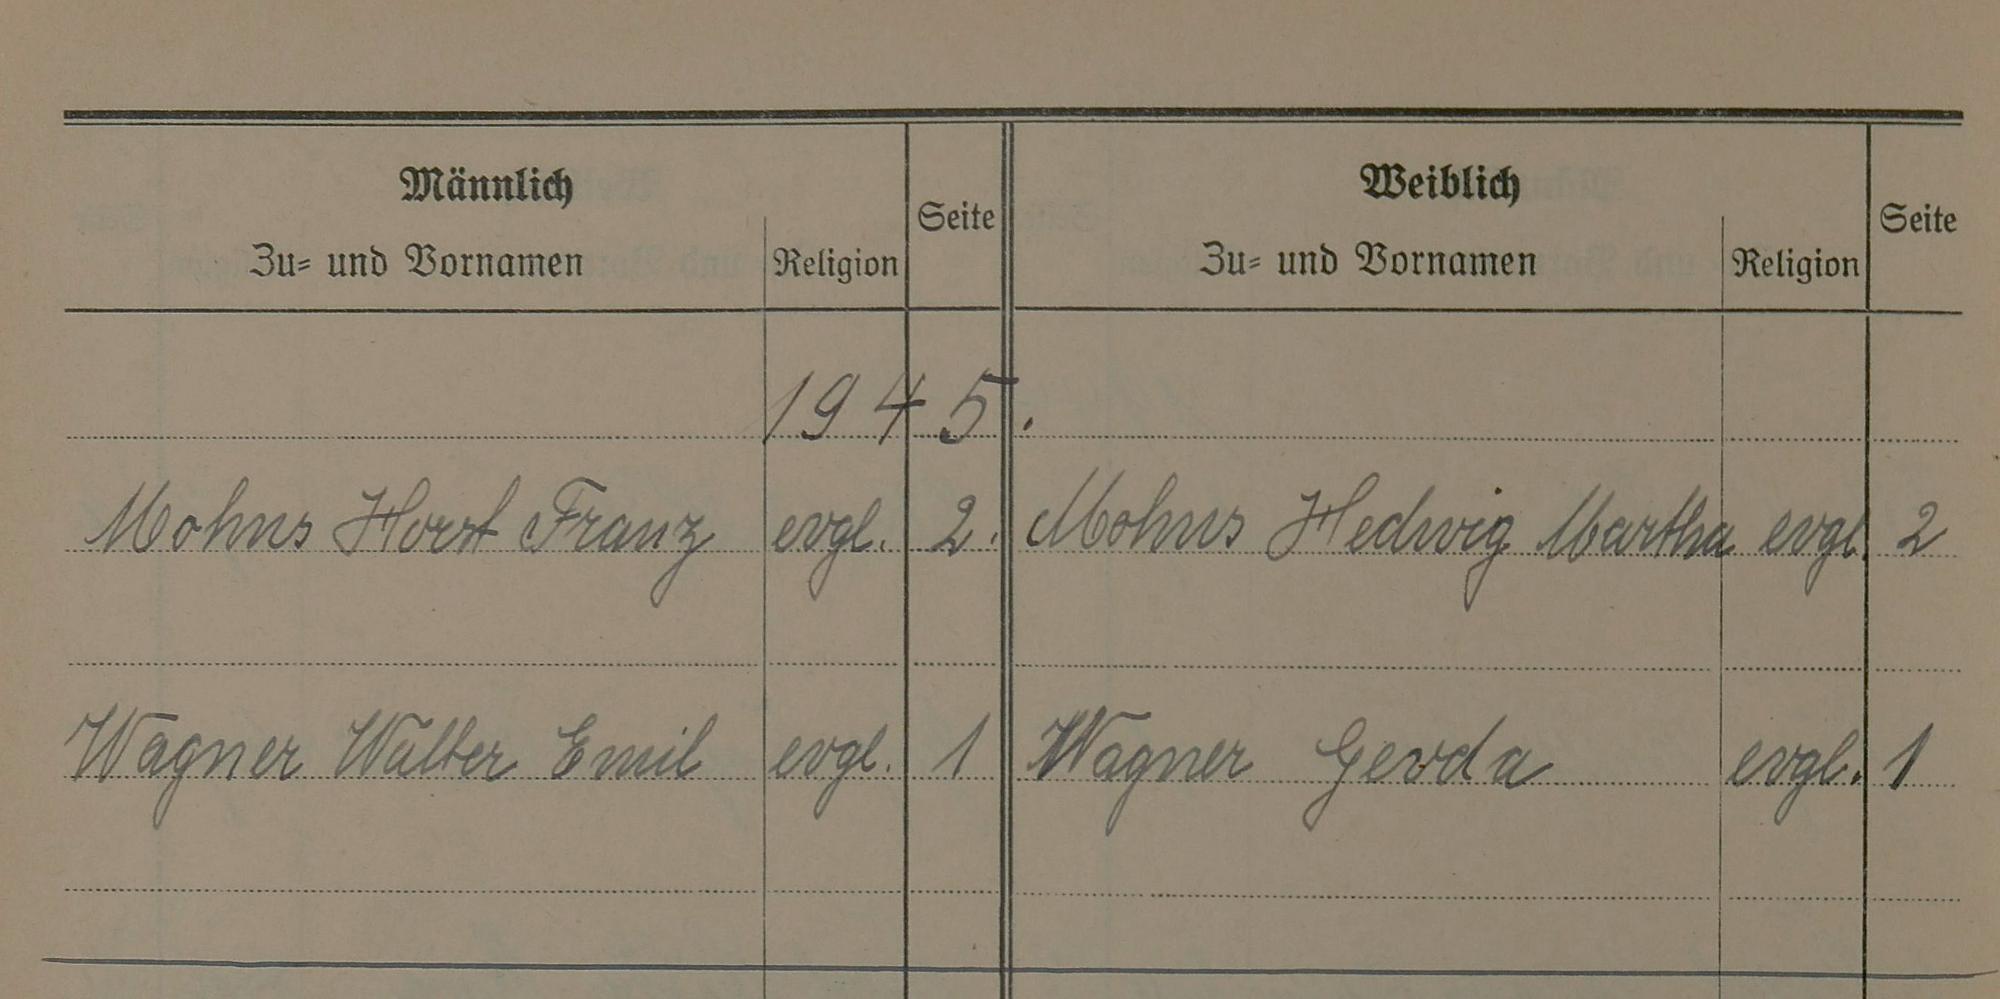 Männlich Seite Weiblich Seite
Zu- und Vornamen Religion Zu- und Vornamen Religion
1945.
Mohns Horst Franz evgl. 2. Mohns Hedwig Martha evgl. 2
Wagner Walter Emil evgl. 1 Wagner Gerda evgl. 1